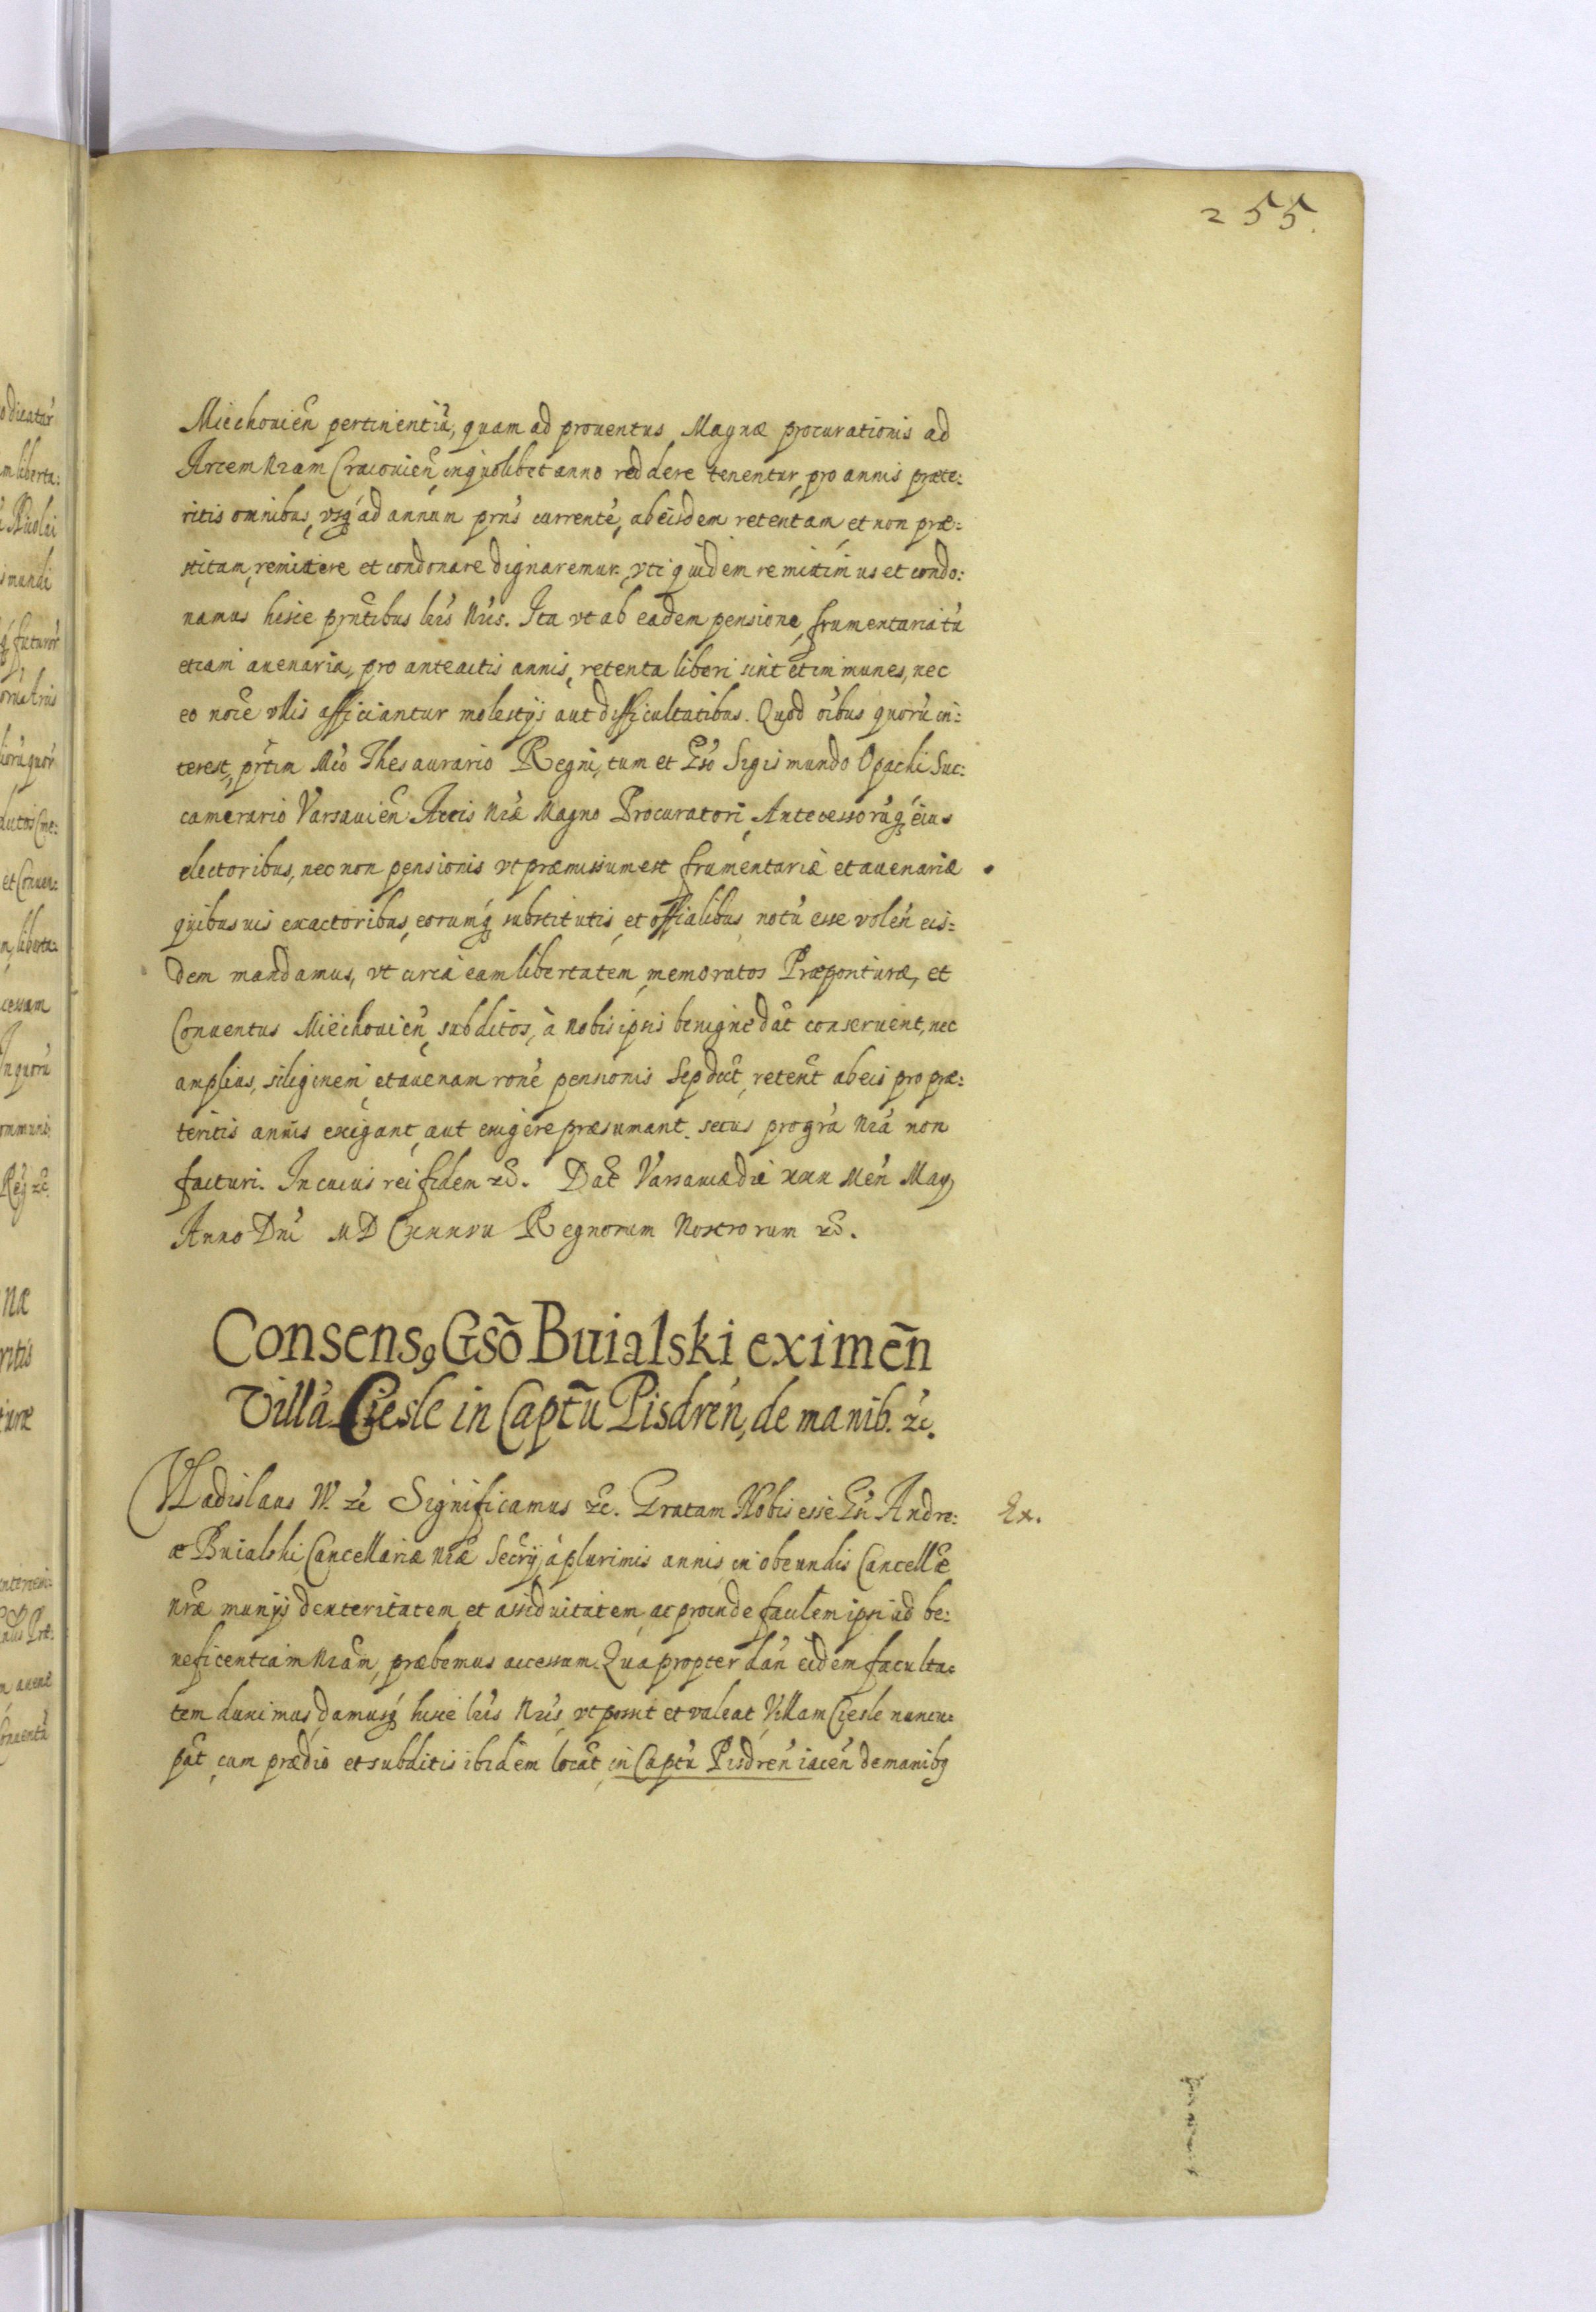 255.
Miechouień pertinentiũ, quam ad prouentus Magnæ procurationis ad
Arcem Nram Cracouień, in quolibet anno reddere tenentur, pro annis præte:
ritis omnibus, vsq́ ad annum prńs currentẽ, ab eisdem retentam, et non præ:
stitam, remittere et condonare dignaremur, vti quidem remittimus et condo:
namus hisce prñtibus lris Nris. Ita vt ab eadem pensione, frumentaria tũ
etiam auenaria, pro anteactis annis, retenta liberi sint et immunes, nec
eo noĩe vllis afficiantur molestijs aut difficultatibus. Quod oĩbus quorũ in:
terest, prṫim Mco Thesaurario Regni, tum et Gso Sigismundo Opacki Suc:
camerario Varsauień Arcis Nræ Magno Procuratori, Antecessorũq́ eius
electoribus, nec non pensionis vt præmissum est frumentariæ et auenariæ
quibusuis exactoribus, eorumq́ substitutis, et offialibus, notũ esse voleń eis:
dem mandamus, vt circa eam libertatem, memoratos Præposituræ, et
Conuentus Miechouień, subditos, à Nobis ipsis benigne dat̃ conseruent, nec
amplius, siliginem, et auenam ronẽ pensionis Sepdict̃, retent̃ ab eis pro præ:
teritis annis exigant, aut exigere præsumant. secus pro gra Nra non
facturi. In cuius rei fidem &c. Dat̃ Varsauiæ die xxx Meń Maij
Anno Dni MDCxxxvii Regnorum Nostrorum &c.
Consens9 Gsõ Buialski eximeñ
Villã Ciesle in Captũ Pisdreń, de manib. &c.
Vladislaus IV. &c Significamus &c. Gratam Nobis esse Gsi Andre:
æ Buialski Cancellariæ Nræ Secrij, à plurimis annis, in obeundis Cancellæ
Nræ munijs dexteritatem, et assiduitatem, ac proinde facilem ipsi ad be:
neficentiam Nram, præbemus accessum. Quapropter dań eidem faculta:
tem duximus, damusq́ hisce lris Nris, vt possit et valeat, Villam Ciesle nuncu:
pat̃, cum prædio et subditis ibidem locat̃, in Captũ Pisdreń iaceń de manibq
Ex.